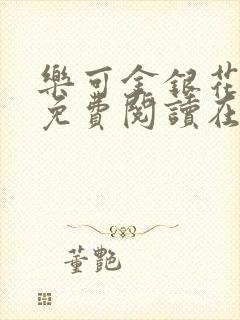 樂可金銀花
免費閱讀在
董艷